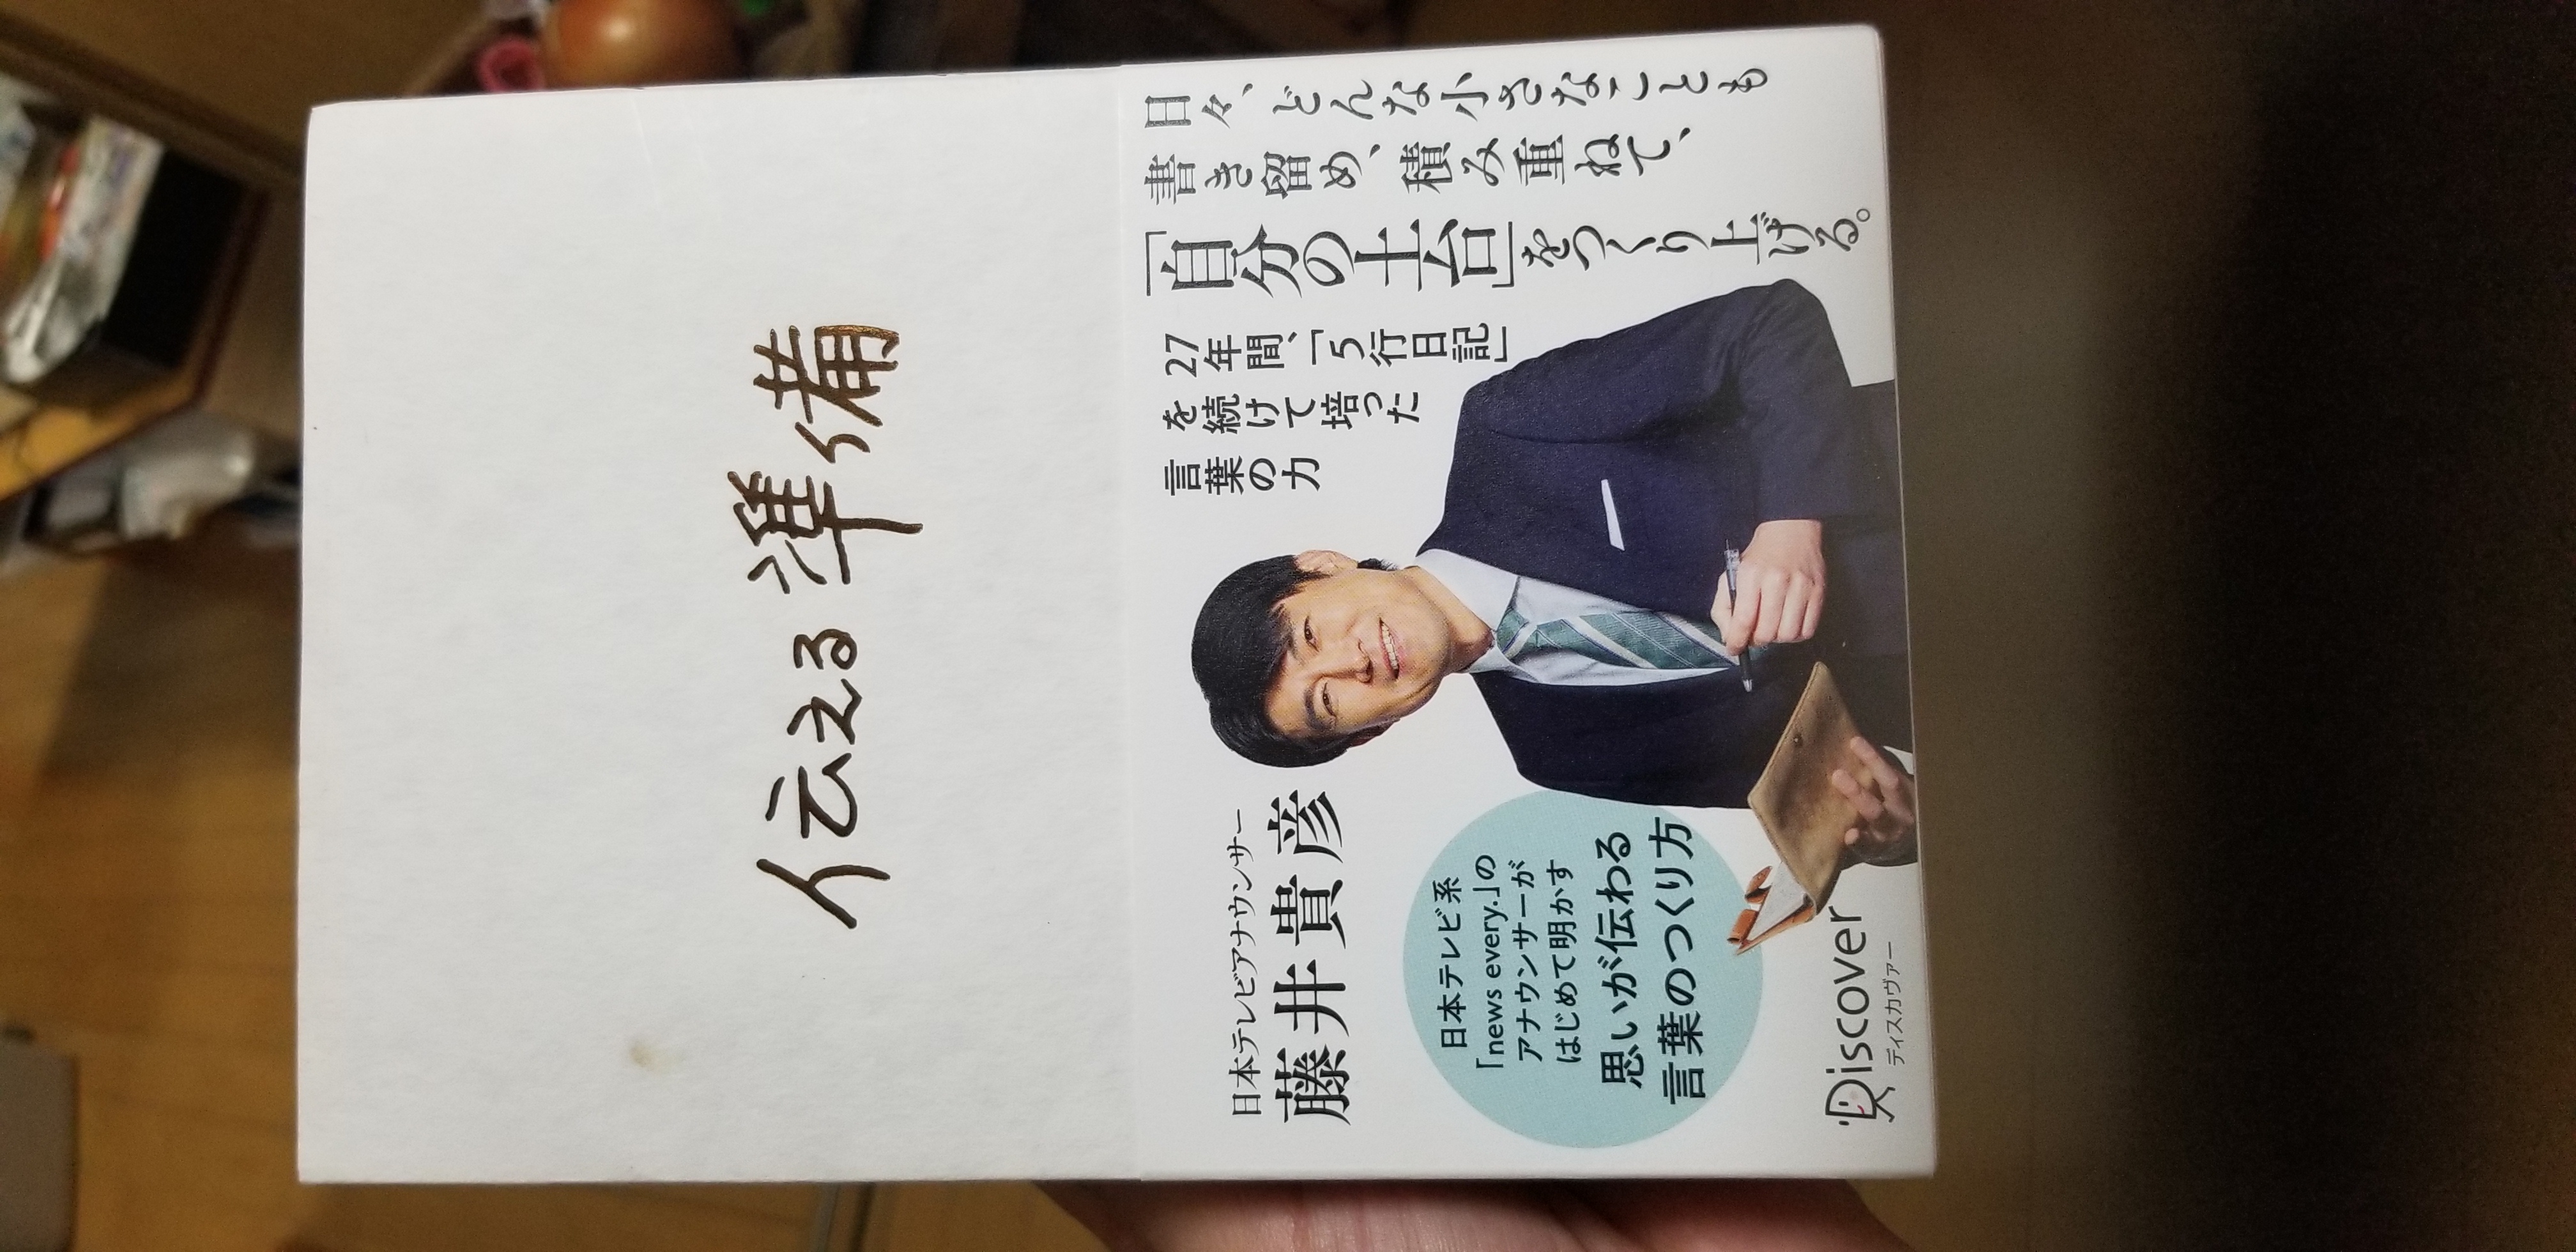 伝える準備
日々、どんな小さなことも
書き留め、積み重ねて、
「自分の土台」をつくり上げる。
27年間、「5行日記」
を続けて培った
言葉の力
日本テレビアナウンサー
藤井貴彦
日本テレビ系
「news every.」の
アナウンサーが
はじめて明かす
思いが伝わる
言葉のつくり方
Discover
ディスカヴァー